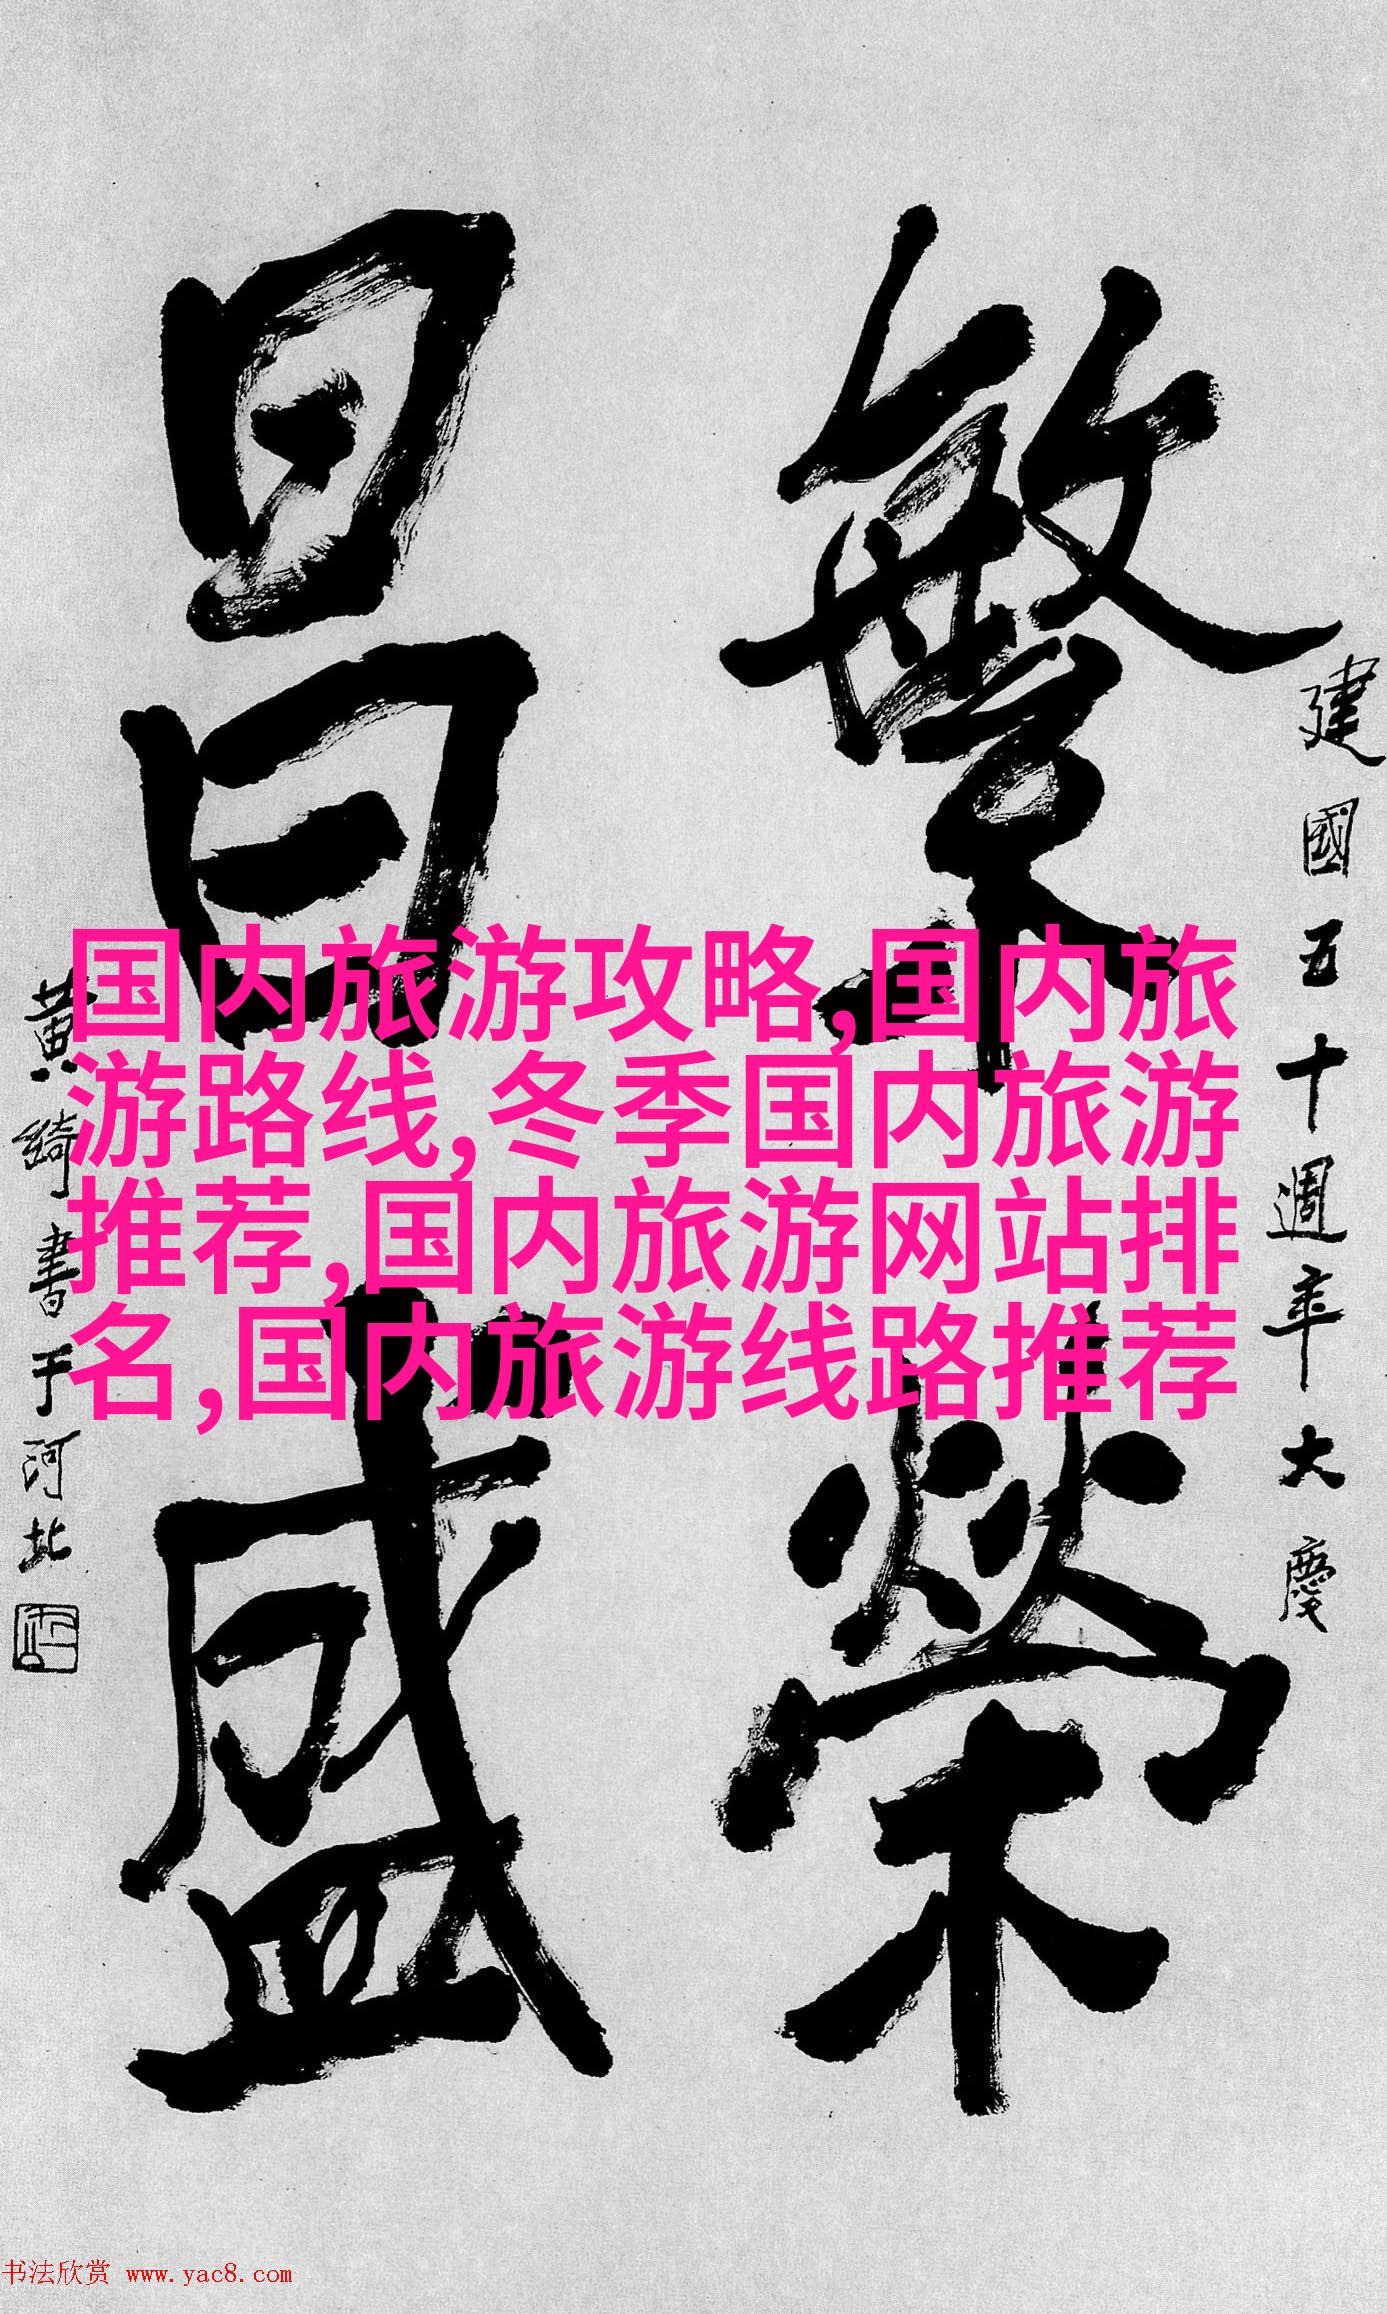 建國五十週年大慶
繁榮
昌盛
黄綺書于河北
国内旅游攻略,国内旅
游路线,冬季国内旅游
推荐,国内旅游网站排
名,国内旅游线路推荐
书法欣赏 www.yac8.com